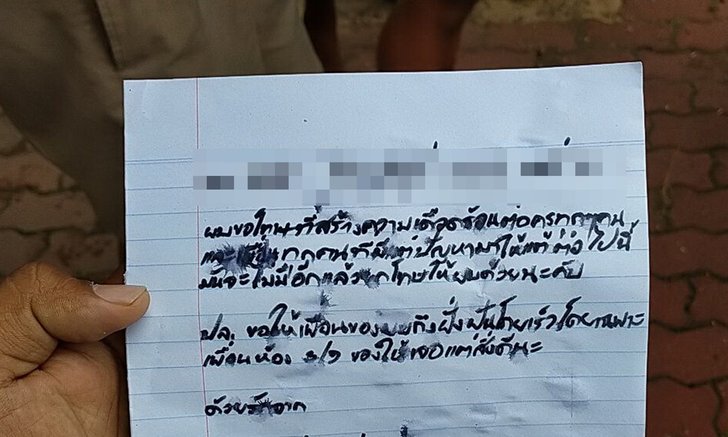 ผมขอโทษที่สร้างความเดือดร้อนต่อครูทุกๆคน
และเพื่อนทุกคนที่มีแต่ปัญหามาให้แต่ต่อไปนี้
มันจะไม่มีอีกแล้วยกโทษให้ผมด้วยนะคับ
ปล. ขอให้เพื่อนของผมถึงฝั่งฝันโดยเร็วโดยเฉพาะ
เพื่อนห้อง ๓/๑ ขอให้เจอแต่สิ่งดีนะ
ด้วยรักจาก